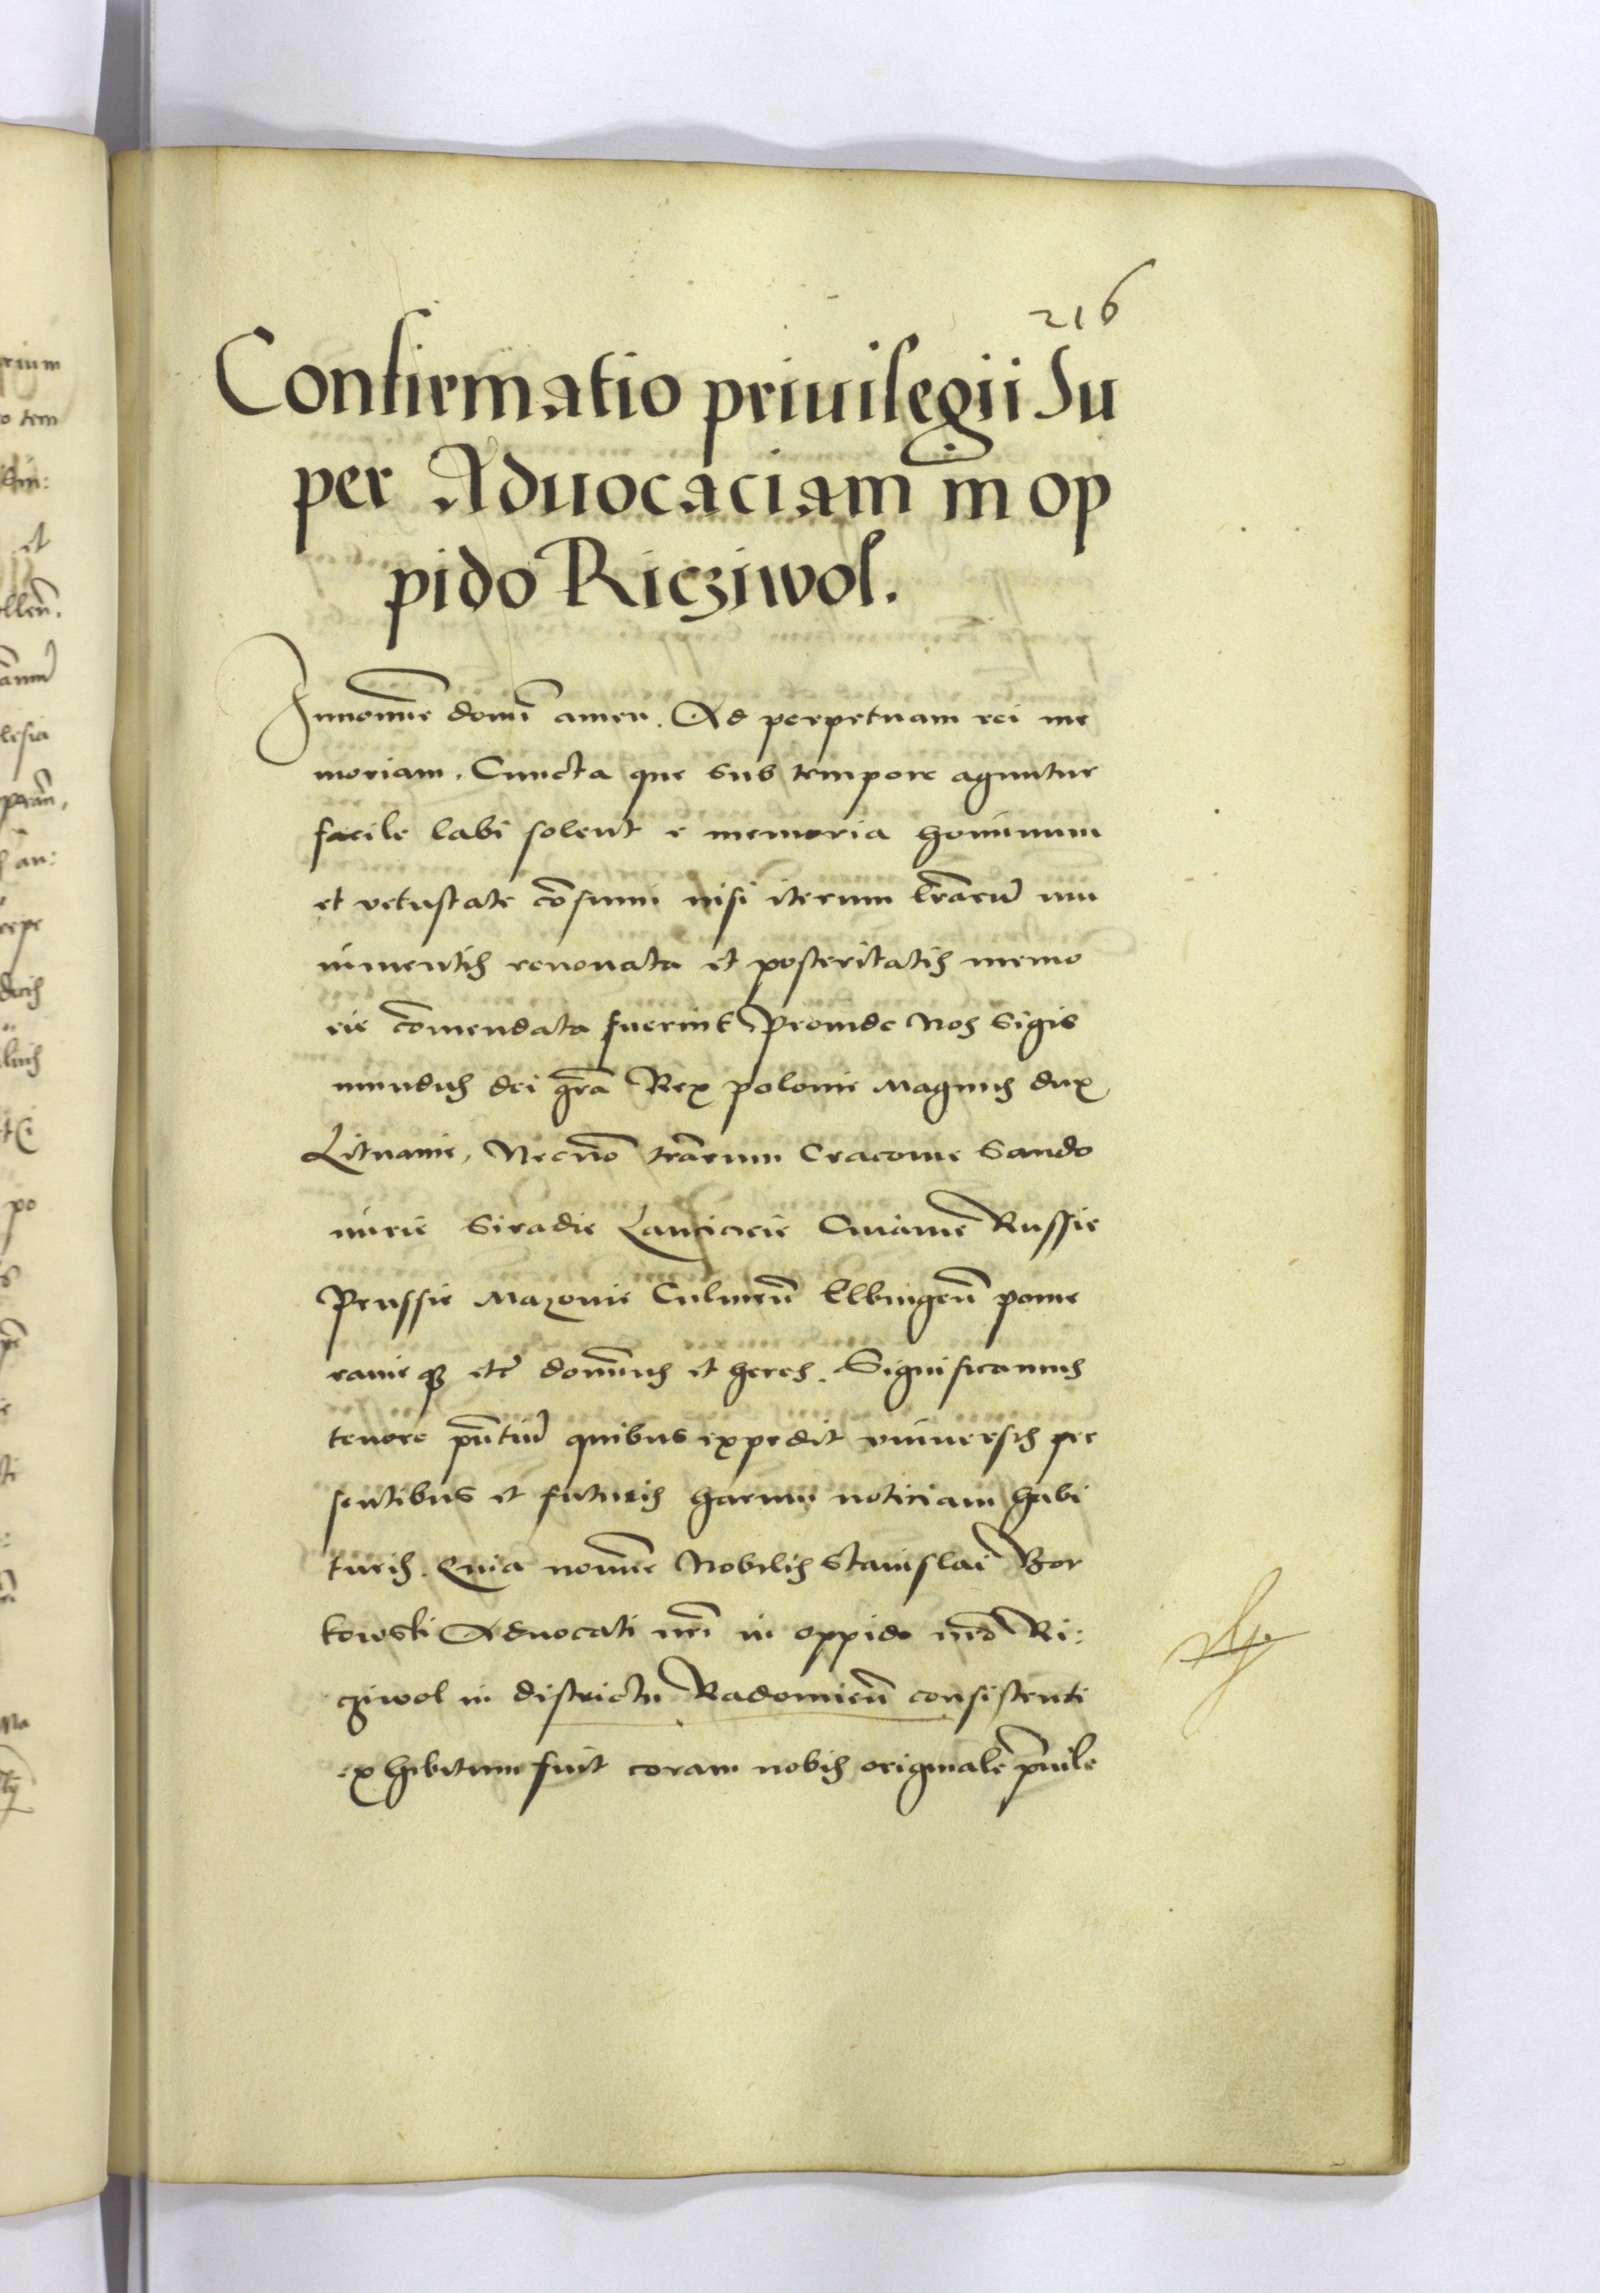 216
Confirmatio priuilegii Su
per Aduocaciam in op
pido Ricziwol.
In nomine domi amen. Ad perpetuam rei me
moriam. Cuncta que sub tempore aguntur
facile labi solent e memoria hominum
et vetustate cōsumi nisi iterum lrārū mu
nimentis renouata et posteritatis memo
rie cōmendata fuerint Proinde Nos Sigis
mundus dei grā Rex polonie Magnus dux
Lituanie, Necnō trārum Cracouie Sando
mirie Siradie Lancicie Cuiauie Russie
Prussie Mazouie Culmeñ Elbingeñ pome
ranie q3 etc dominus et heres. Significamus
tenore pñtiū quibus expedit vniuersis pre
sentibus et futuris harum noticiam habi
turis. Quia nomine Nobilis Stanislai Bor
kowski Aduocati nrī in oppido nrō Ri:
cziwol in districtu Radomieñ consistenti
exhibitum fuit coram nobis originale priuile